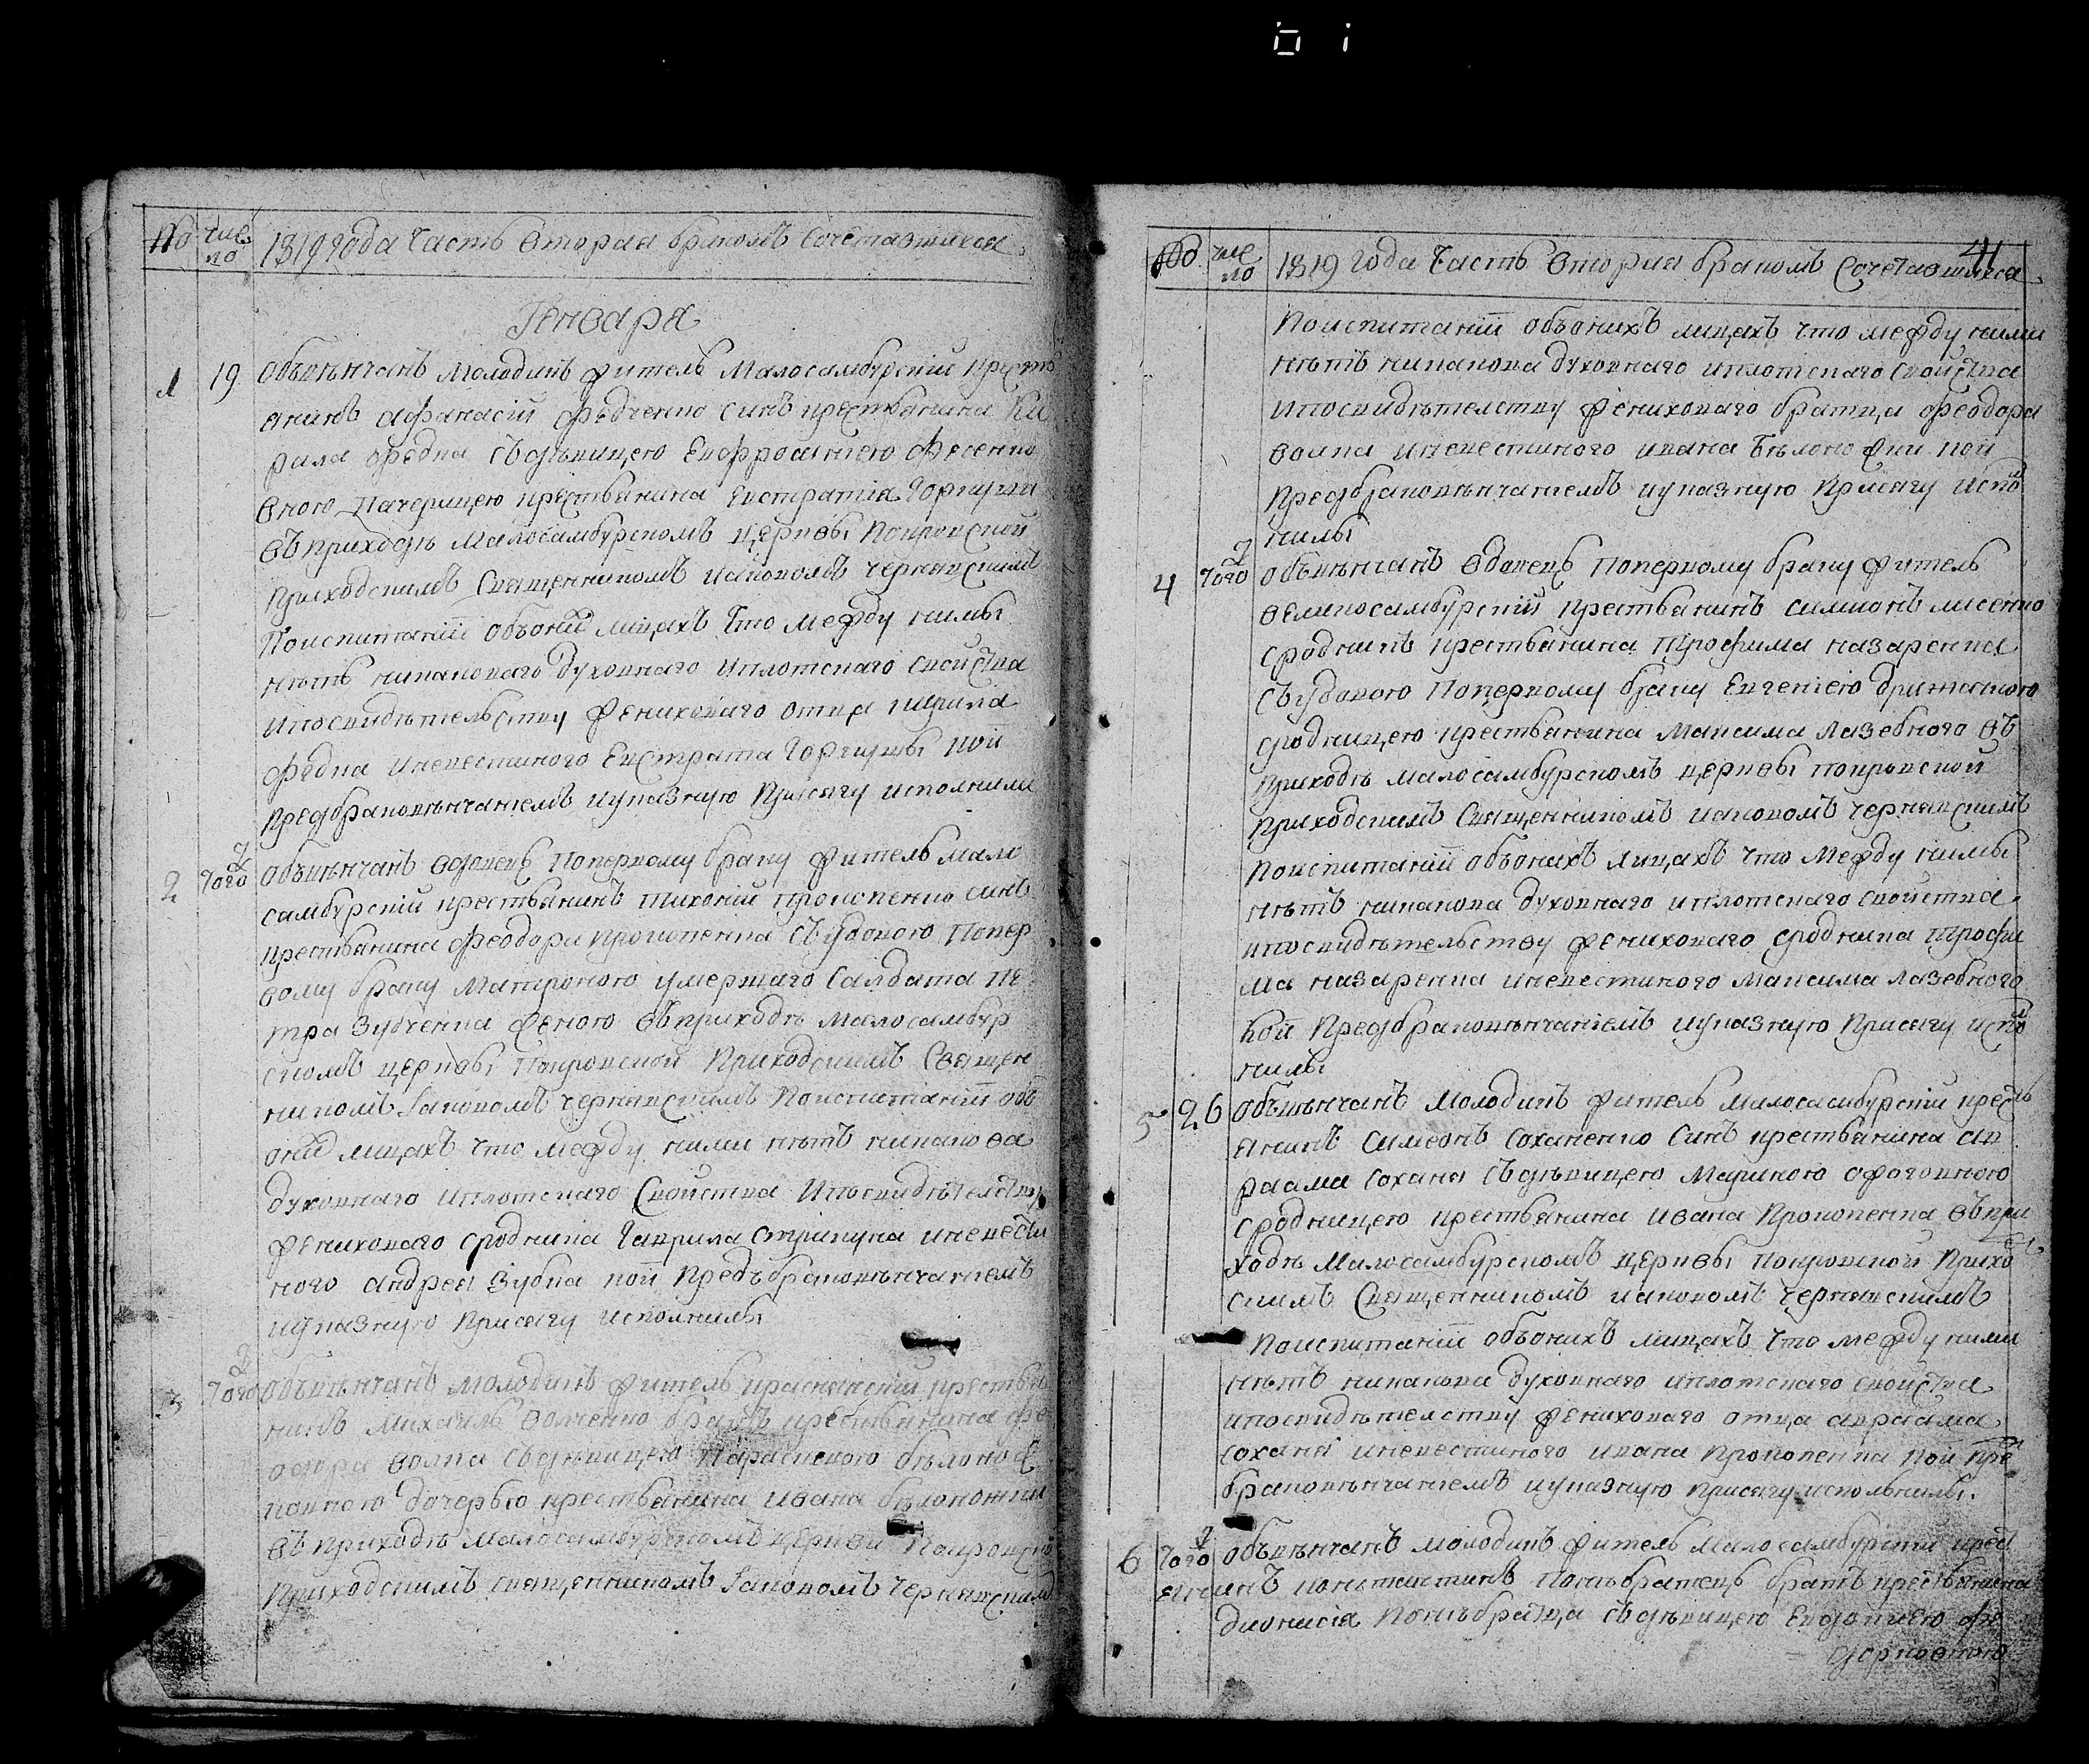 No чис
ло
1819 года Часть вторая бракомъ сочетавшихся
Генваря
1 19 Обвѣнчанъ молодикъ житель малосамбурскій кресть
янинъ Афанасій Федченко синъ крестьянина Ки
рила Федка съ дѣвицею Евфросиніею Фесенко
вною падчерицею крестьянина Евстратія Горкуши
въ приходѣ малосамбурскомъ церквы Покровской
приходскимъ священникомъ Иаковомъ Чернявскимъ
По испитаніи объоних лицахъ что между нимы
нѣтъ никаковаго духовнаго и плотскаго свойства
и по свидѣтельству жениховаго отца Кирила
Федка и невестиного Евстрата Горкушы кои
предбраковѣнчаніемъ и указную присягу исполнили
2 того ж Обвѣнчанъ вдовецъ по первому браку житель мало
самбурскій крестьянинъ Тихоній Прокопенко синъ
крестьянина Феодора Прокопенка съ удовою по пер
вому браку Матроною умершаго салдата Пе
тра Зубченка женою въ приходѣ малосамбур
скомъ церквы Покровской приходскимъ священ
никомъ Іаковомъ Чернявскимъ По испитаніи объ
оних лицахъ что между ними нѣтъ никакова
духовнаго и плотскаго свойства и по свидѣтелству
жениховаго сродника Гаврила Стрикуна и невести
ного Андрея Зубка кои предъбраковѣнчаніемъ
и указную присягу исполнилы
3 того ж Обвѣнчанъ молодикъ житель краснянскій крестья
нинъ Михаилъ Волченко братъ крестьянина Фе
одора Волка съ дѣвицею Параскевою Бѣлонож
ковною дочерью крестьянина Ивана Бѣлоножки
въ приходѣ малосамбурскомъ церкви Покровской
приходскимъ священникомъ Іаковомъ Чернявскимъ
41
No чис
ло
1819 года Часть вторая бракомъ сочетавшихся
По испитаніи объонихъ лицахъ что между ними
нѣтъ никакова духовнаго и плотскаго свойства
и по свидѣтелству жениховаго братца Феодора
Волка и невестиного Ивана Бѣлоножки кои
предбраковѣнчаніемъ и указную присягу испол
нилы
4 того ж Обвѣнчанъ вдовецъ по первому браку житель
великосамбурскій крестьянинъ Симионъ Лисенко
сродникъ крестьянина Трофима Назаренка
съ удовою по первому браку Евгеніею
сродницею крестьянина Максима Лазебного въ
приходѣ малосамбурскомъ церквы Покровской
приходскимъ священникомъ Иаковомъ Чернявскимъ
По испитаніи объонихъ лицахъ что между нимы
нѣтъ никакова духовнаго и плотскаго свойства
и по свидѣтельству жениховаго сродника Трофи
ма Назаренка и невестиного Максима Лазебного
Кои предбраковѣнчаніемъ и указную присягу испол
нилы
5 26 Обвѣнчанъ молодикъ житель малосамбурскій кресть
янинъ Симеонъ Соханенко синъ крестьянина Ав
раама Сохана съ дѣвицею Мариною
сродницею крестьянина Ивана Прокопенка въ при
ходѣ малосамбурскомъ церквы Покровской прихо
скимъ священникомъ Иаковомъ Чернявскимъ
По испитаніи объонихъ лицахъ что между ними
нѣтъ никакова духовнаго и плотскаго свойства
и по свидѣтелству жениховаго отца Авраама
Сохана и невестиного Ивана Прокопенка кои пред
браковѣнчаніемъ и указную присягу исполнилы.
6 того ж Обвѣнчанъ молодикъ житель малосамбурскій крест
янинъ Константинъ братъ крестьянина
Дионисія съ дѣвицею Евдокиею Фе
дорковною